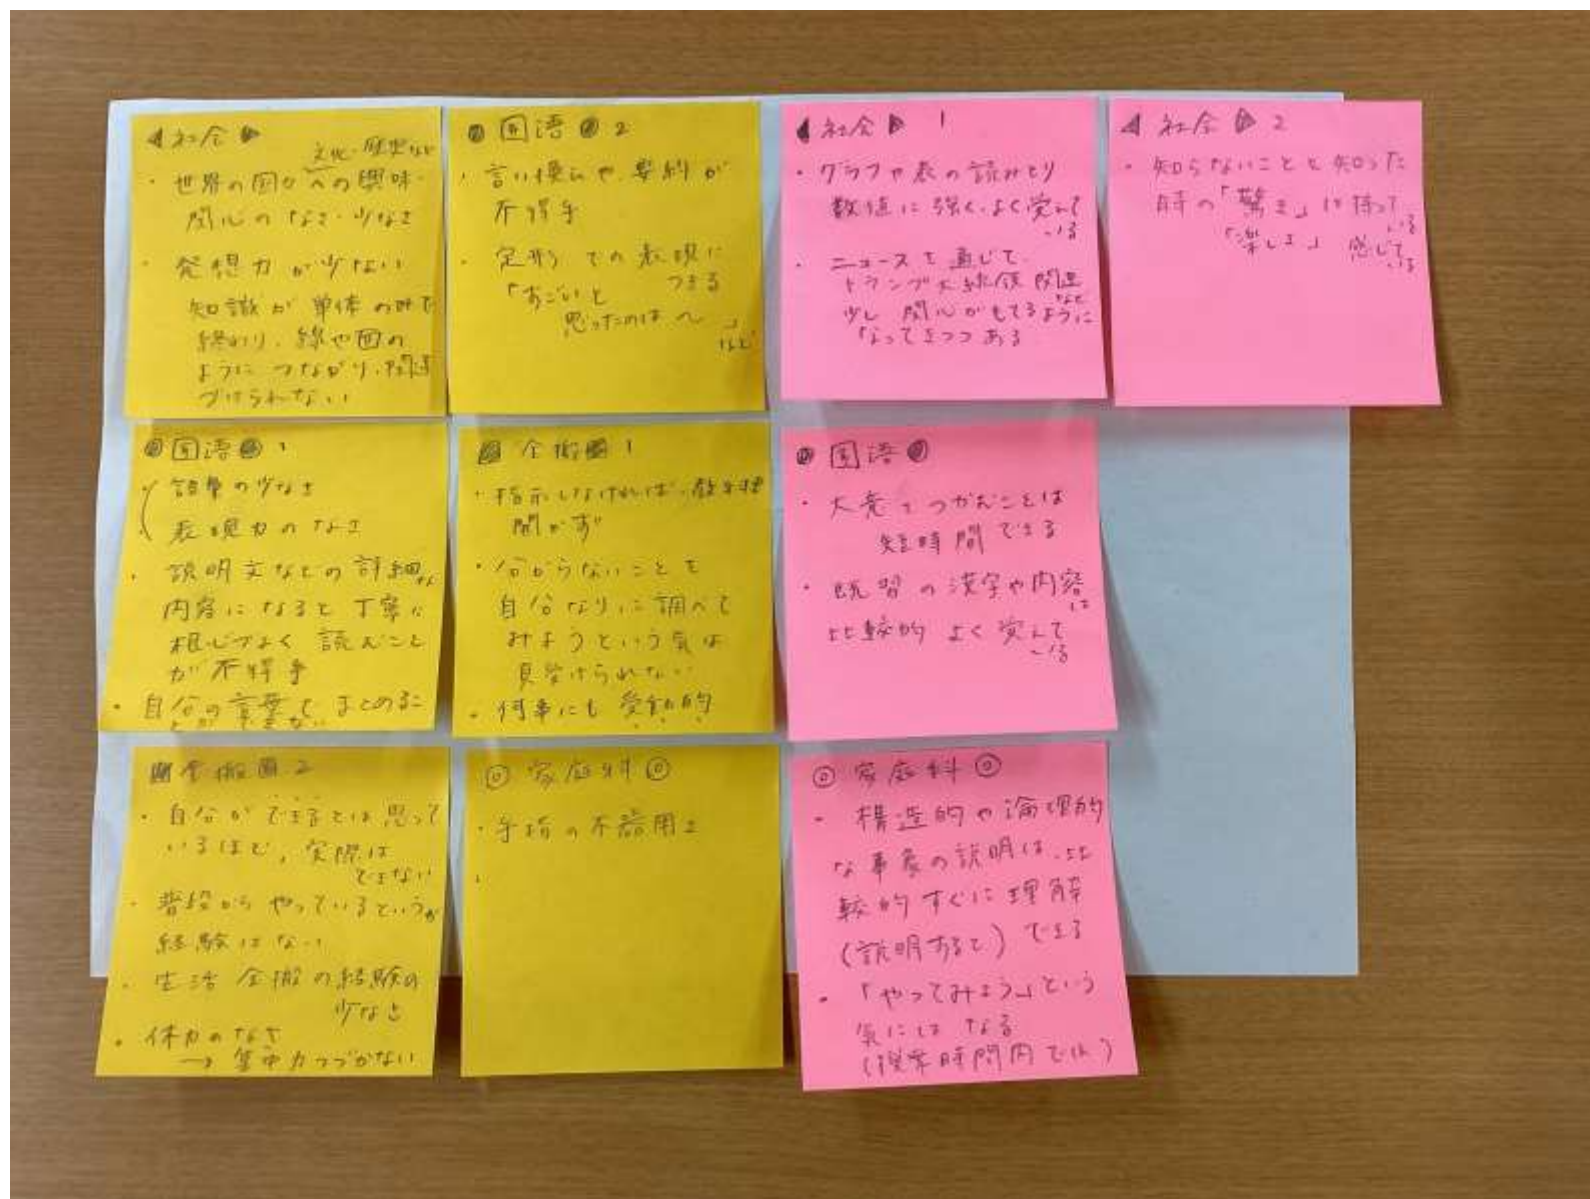 社会
文化・歴史など
・世界の国々への興味・
関心のなさ・少なさ
・発想力が少ない
知識が単体のみで
終わり、線や面の
ようにつながり、関連
づけられない
国語 2
・言い換えや要約が
不得手
・定形での表現に
つきる
「すごいと
思ったのは〜」
など
社会 1
・グラフや表の読みとり
数値に強く、よく覚えて
いる
・ニュースを通じて、
トランプ大統領関連
など
少し関心がもてるように
なってきつつある
社会 2
・知らないことを知った
時の「驚き」は持って
いる
「楽しさ」感じて
いる
国語 1
・語彙の少なさ
表現力のなさ
・説明文などの詳細な
内容になると丁寧に
根じづよく読むこと
が不得手
・自分の言葉でまとめるこ
とができない
全搬 1
・指示しなければ、教科書
開かず
・分からないことを
自分なりに調べて
みようという気は
見受けられない
・何事にも受動的
国語
・大意をつかむことは
短時間できる
・既習の漢字や内容
は
比較的よく覚えて
いる
全搬 2
・自分ができるとは思って
いるほど、実際は
できない
・普段からやっているというが
経験はない
・生活全搬の経験の
少なさ
・体力のなさ
→集中力つづかない
◎家庭科◎
・手指の不器用さ
・
◎家庭科◎
・構造的や論理的
な事象の説明は、比
較的すぐに理解
(説明すると)できる
・「やってみよう」という
気にはなる
(授業時間内では)